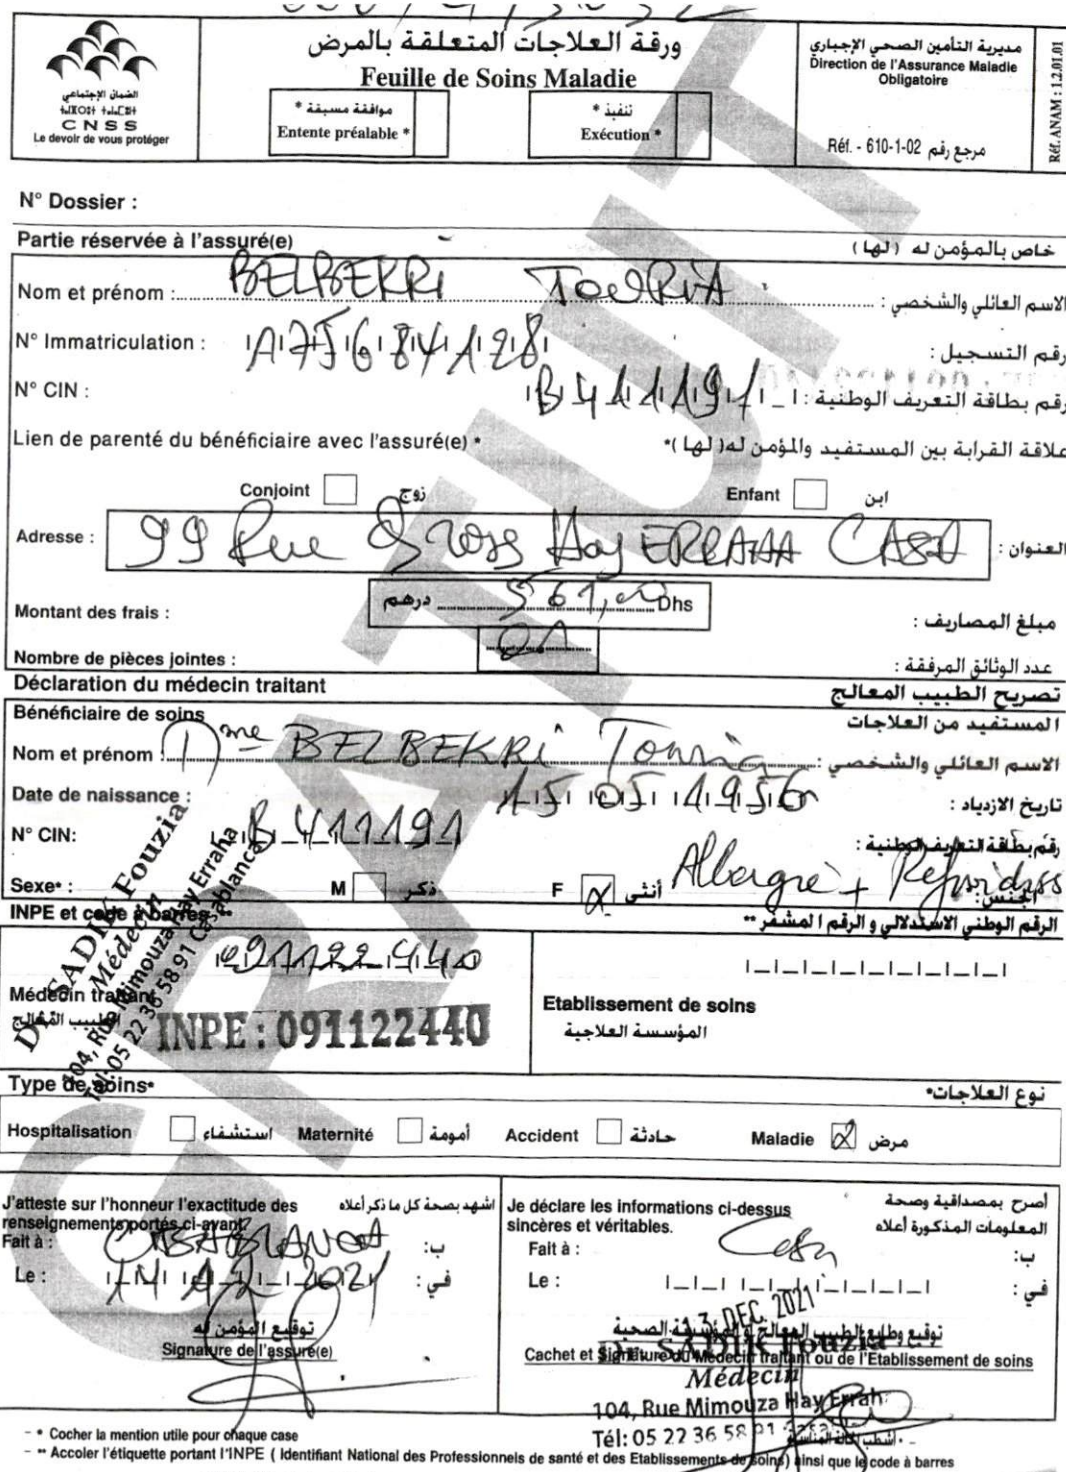 ورقة العلاجات المتعلقة بالمرض
Feuille de Soins Maladie
الضمان الإجتماعي
CNSS
Le devoir de vous protéger
موافقة مسبقة *
Entente préalable *
تنفيذ *
Exécution *
مديرية التأمين الصحي الإجباري
Direction de l'Assurance Maladie
Obligatoire
Réf. - 610-1-02 مرجع رقم
Réf. ANAM : 1.2.01.01
GRATUIT
N° Dossier :
Partie réservée à l'assuré(e) خاص بالمؤمن له (لها)
Nom et prénom : BELBEKRI TOURIA الاسم العائلي والشخصي :
N° Immatriculation : رقم التسجيل :
N° CIN : B411191 رقم بطاقة التعريف الوطنية :
Lien de parenté du bénéficiaire avec l'assuré(e) * علاقة القرابة بين المستفيد والمؤمن له (لها) *
Conjoint زوج Enfant ابن
Adresse : 99 Rue Hay ERRAHA CASA العنوان :
Montant des frais : درهم 561,00 Dhs مبلغ المصاريف :
Nombre de pièces jointes : 01 عدد الوثائق المرفقة :
Déclaration du médecin traitant تصريح الطبيب المعالج
Bénéficiaire de soins المستفيد من العلاجات
Nom et prénom : Mme BELBEKRI Touria الاسم العائلي والشخصي :
Date de naissance : 15 05 1956 تاريخ الازدياد :
N° CIN: B 411191 رقم بطاقة التعريف الوطنية :
Sexe* : M ذكر F أنثى الجنس:
INPE et code à barres ** الرقم الوطني الاستدلالي و الرقم المشفر **
091122440
Médecin traitant
الطبيب المعالج
INPE : 091122440
Etablissement de soins
المؤسسة العلاجية
Dr. SADIK Fouzia
Médecin
104, Rue Mimouza Hay Erraha
Tél: 05 22 36 58 91 Casablanca
Type de soins* نوع العلاجات*
Hospitalisation استشفاء Maternité أمومة Accident حادثة Maladie مرض
J'atteste sur l'honneur l'exactitude des اشهد بصحة كل ما ذكر أعلاه
renseignements portés ci-avant
Fait à : CASABLANCA ب:
Le : 14 12 2021 في :
توقيع المؤمن له
Signature de l'assuré(e)
Je déclare les informations ci-dessus أصرح بمصداقية وصحة
sincères et véritables. المعلومات المذكورة أعلاه
Fait à : Casa ب:
Le : في :
13 DEC. 2021
توقيع وطابع الطبيب المعالج أو المؤسسة الصحية
Cachet et Signature du Médecin traitant ou de l'Etablissement de soins
Dr. SADIK Fouzia
Médecin
104, Rue Mimouza Hay Errah
Tél: 05 22 36 58 91
- * Cocher la mention utile pour chaque case
- ** Accoler l'étiquette portant l'INPE ( Identifiant National des Professionnels de santé et des Etablissements de soins) ainsi que le code à barres